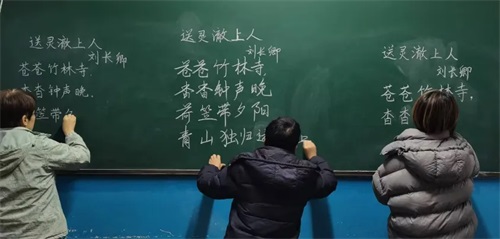 送灵澈上人
刘长卿
苍苍竹林寺,
杳钟声晚,
笠带夕
送灵澈上人
刘长卿
苍苍竹林寺,
杳杳钟声晚
荷笠带夕阳
青山独归远
送灵澈上人
刘长卿
苍苍竹林寺,
杳杳